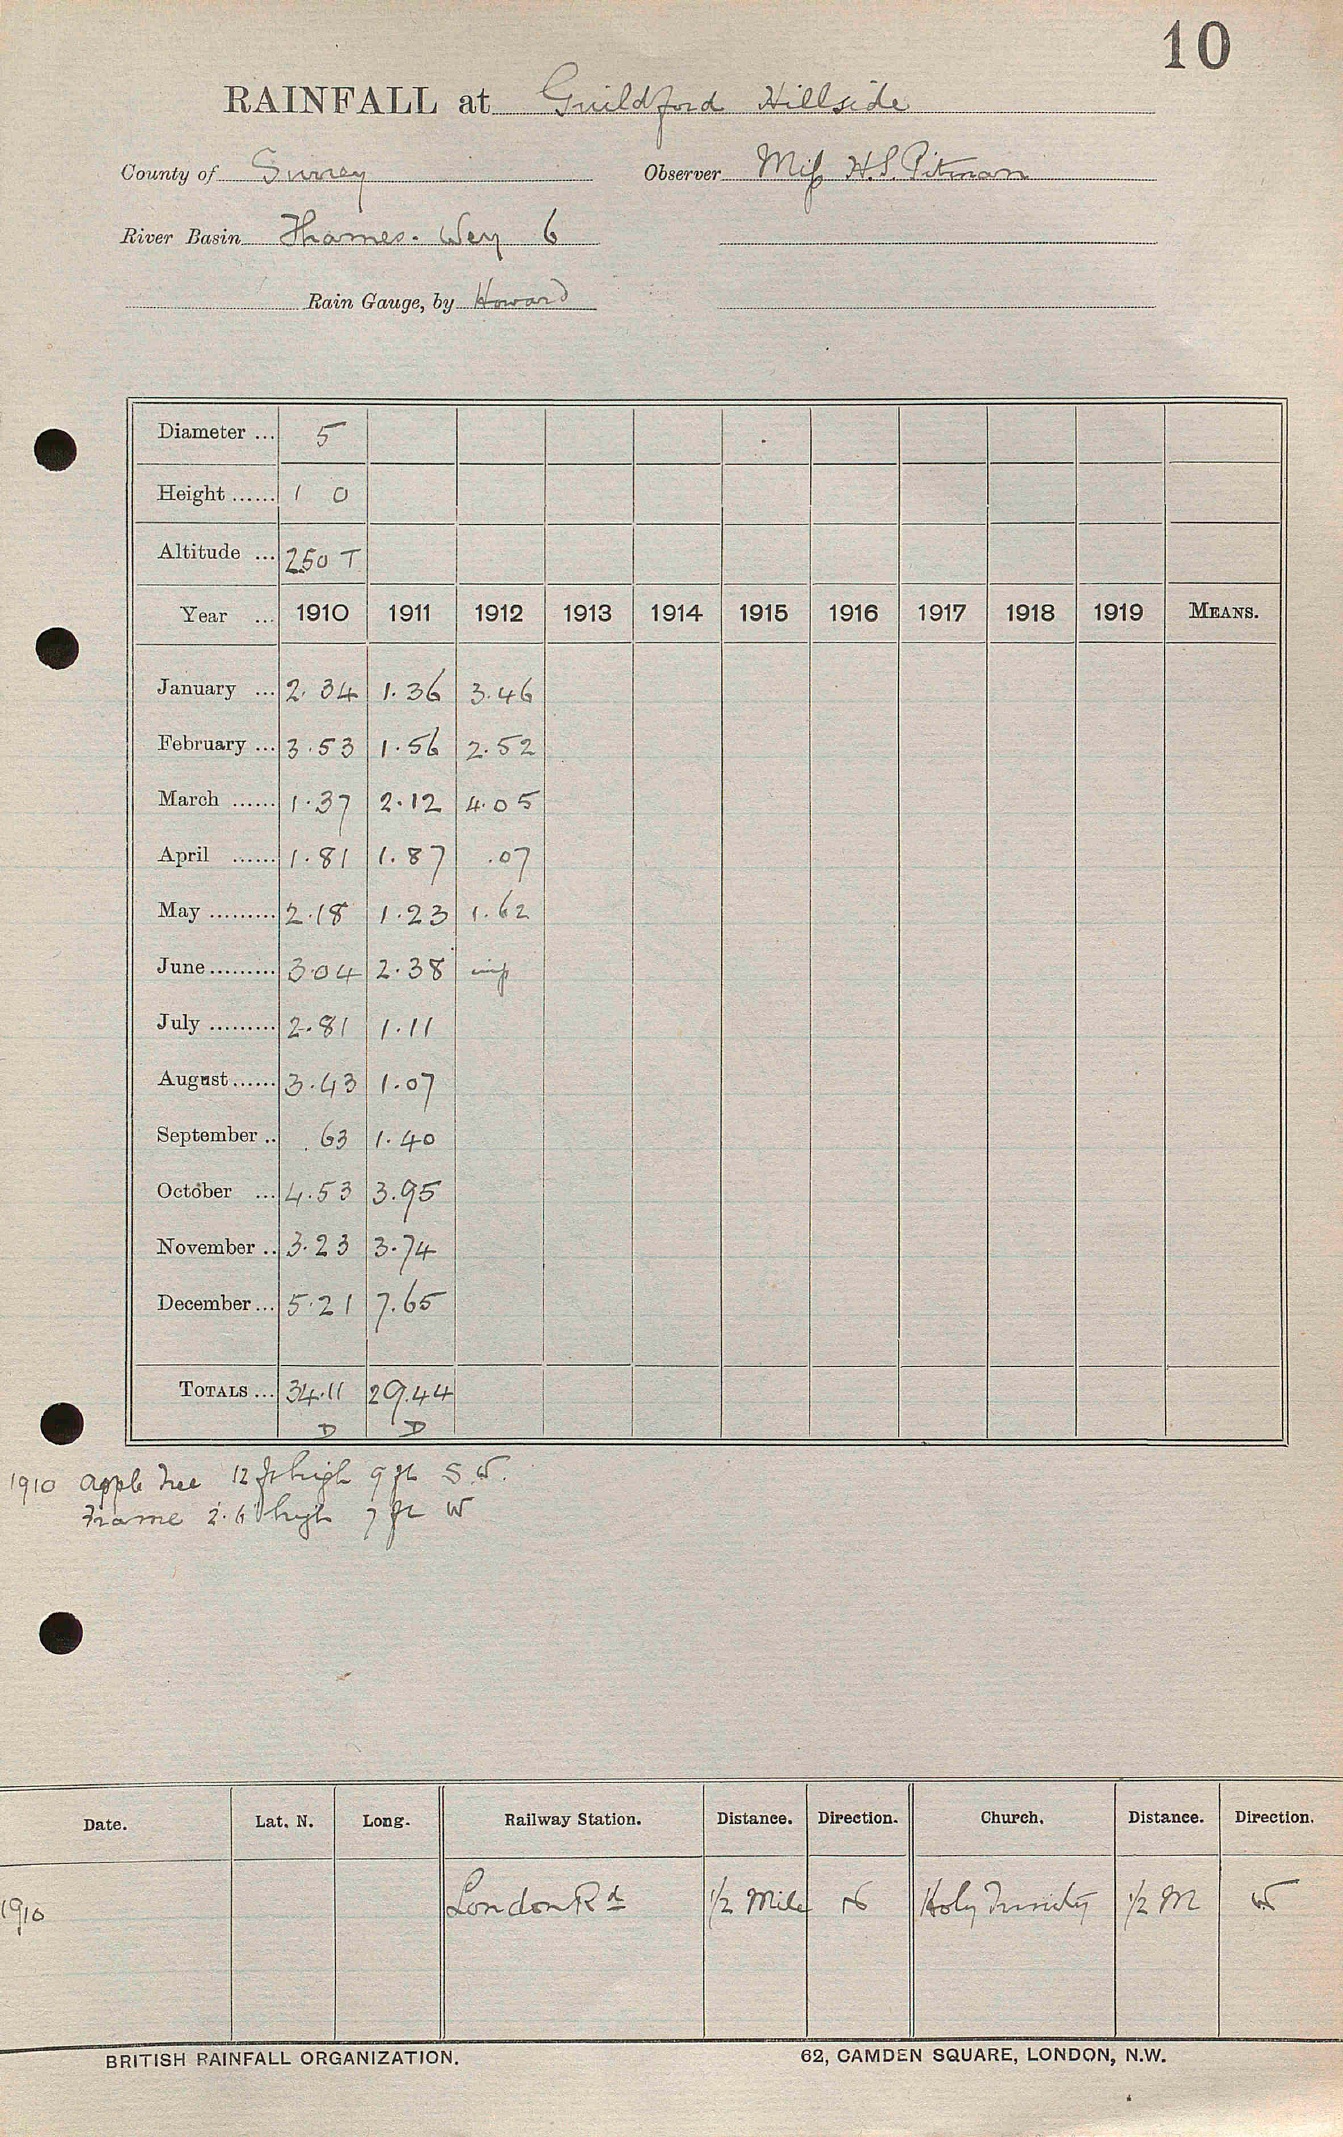 10
RAINFALL at Guildford Hillside
County of Surrey Observer Miss H.S. Pitman
River Basin Thames. Wey 6
Rain Gauge, by Howard
Diameter ... 5
Height ...... 1 0
Altitude ... 250 T
Year ... 1910 1911 1912 1913 1914 1915 1916 1917 1918 1919 MEANS.
January ... 2.34 1.36 3.46
February ... 3.53 1.56 2.52
March ...... 1.37 2.12 4.05
April ...... 1.81 1.87 .07
May ......... 2.18 1.23 1.62
June ......... 3.04 2.38 imp
July ......... 2.81 1.11
August ...... 3.43 1.07
September .. .63 1.40
October ... 4.53 3.95
November .. 3.23 3.74
December ... 5.21 7.65
TOTALS ... 34.11 29.44
D D
1910 apple tree 12 ft high 9 ft S.W.
Frame 2.6 high 7 ft W
Date. Lat. N. Long. Railway Station. Distance. Direction. Church. Distance. Direction.
1910 London Rd 1/2 Mile N Holy Trinity 1/2 M W
BRITISH RAINFALL ORGANIZATION. 62, CAMDEN SQUARE, LONDON, N.W.